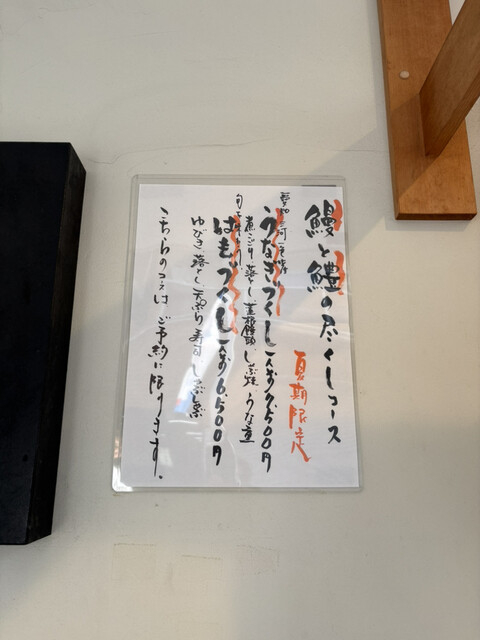 鰻と鱧の尽くしコース
夏期限定
愛知三河一色産
うなぎづくし一人前7,500円
煮こごり 落とし しぶ焼 うな重
旬を味わう
はもづくし一人前6,500円
ゆびき 落とし 天ぷら 寿司 しゃぶしゃぶ
こちらのコースはご予約に限ります。